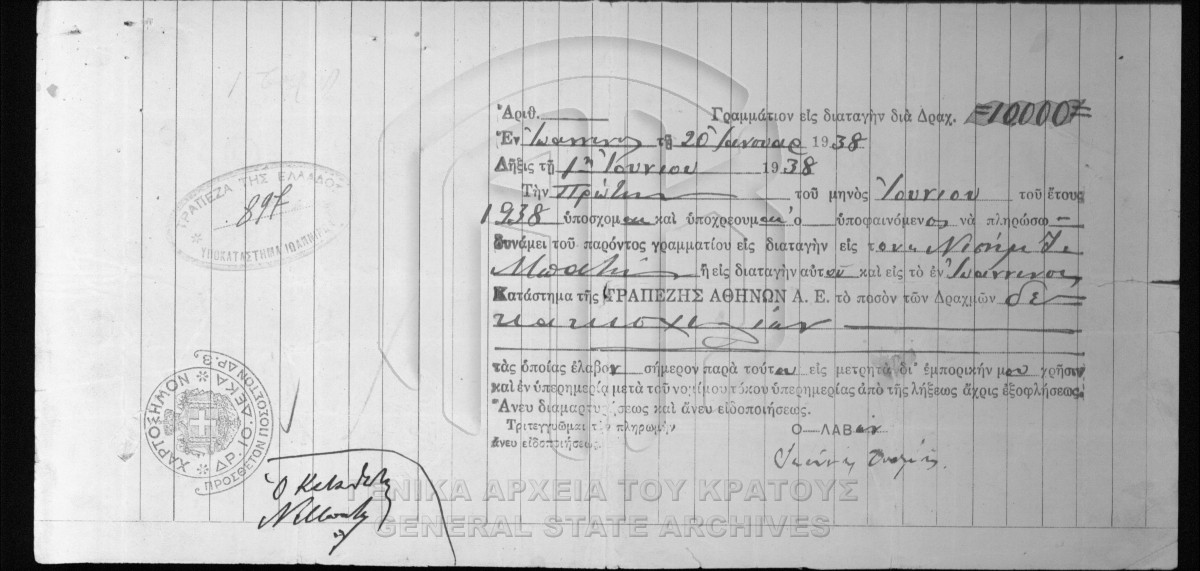 Ἀριθ. Γραμμάτιον εἰς διαταγὴν διὰ Δραχ. =10.000=
Ἐν Ἰωαννίνοις τῇ 20 Ἰανουαρ 1938
Λῆξις τῇ 1ῃ Ἰουνίου 1938
Τὴν Πρώτην τοῦ μηνὸς Ἰουνίου τοῦ ἔτους
1938 ὑποσχομαι καὶ ὑποχρεουμαι ὁ ὑποφαινόμενος νὰ πληρώσω
δυνάμει τοῦ παρόντος γραμματίου εἰς διαταγὴν εἰς τον Νισήμ
Μπατή ἢ εἰς διαταγὴν αὐτοῦ καὶ εἰς τὸ ἐν Ἰωαννίνοις
Κατάστημα τῆς ΤΡΑΠΕΖΗΣ ΑΘΗΝΩΝ Α. Ε. τὸ ποσὸν τῶν Δραχμῶν δε
κακισχιλίων
τὰς ὁποίας ἔλαβον σήμερον παρὰ τούτου εἰς μετρητὰ δι' ἐμπορικήν μου χρῆσιν
καὶ ἐν ὑπερημερίᾳ μετὰ τοῦ νομίμου τόκου ὑπερημερίας ἀπὸ τῆς λήξεως ἄχρις ἐξοφλήσεως.
Ἄνευ διαμαρτυρήσεως καὶ ἄνευ εἰδοποιήσεως.
Τριτεγγυῶμαι τὴν πληρωμὴν
ἄνευ εἰδοποιήσεως.
Ο ΛΑΒων
Ἰωάννης
ΤΡΑΠΕΖΑ ΤΗΣ ΕΛΛΑΔΟΣ
897
ΥΠΟΚΑΤΑΣΤΗΜΑ ΙΩΑΝΝΙΝΩΝ
ΧΑΡΤΟΣΗΜΟΝ
ΔΡ. 10. ΔΕΚΑ
ΠΡΟΣΘΕΤΟΝ ΠΟΣΟΣΤΟΝ ΔΡ. 3
Ὁ Καταθέτης
ΓΕΝΙΚΑ ΑΡΧΕΙΑ ΤΟΥ ΚΡΑΤΟΥΣ
GENERAL STATE ARCHIVES